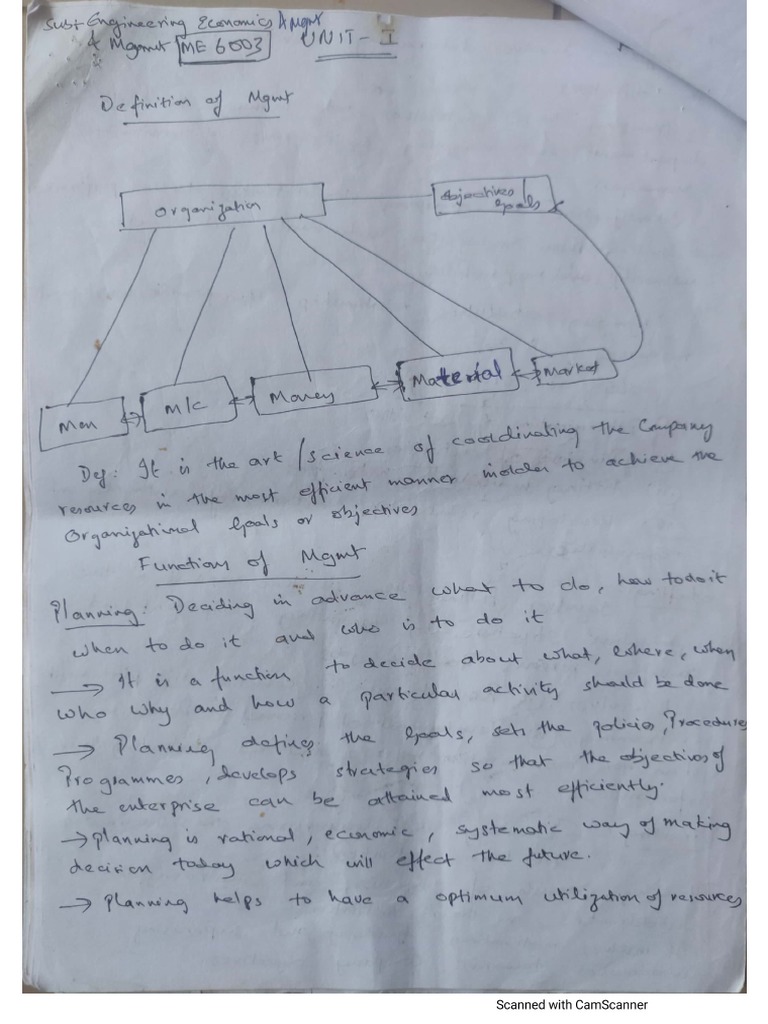 Sub:- Engineering Economics & Mgmt
& Mgmut ME 6003 UNIT - I
Definition of Mgmt
Organization
Objectives/
Goals
Men
M/C
Money
Material
Market
Def: It is the art/science of coordinating the Company
resources in the most efficient manner inorder to achieve the
Organizational Goals or objectives
Functions of Mgmt
Planning: Deciding in advance what to do, how todo it
when to do it and who is to do it
→ It is a function to decide about what, where, when
who why and how a particular activity should be done
→ Planning defines the Goals, sets the policies, Procedures
Programmes, develops strategies so that the objectives of
the enterprise can be attained most efficiently.
→ planning is rational, economic, systematic way of making
decision today which will effect the future.
→ planning helps to have a optimum utilization of resources
Scanned with CamScanner